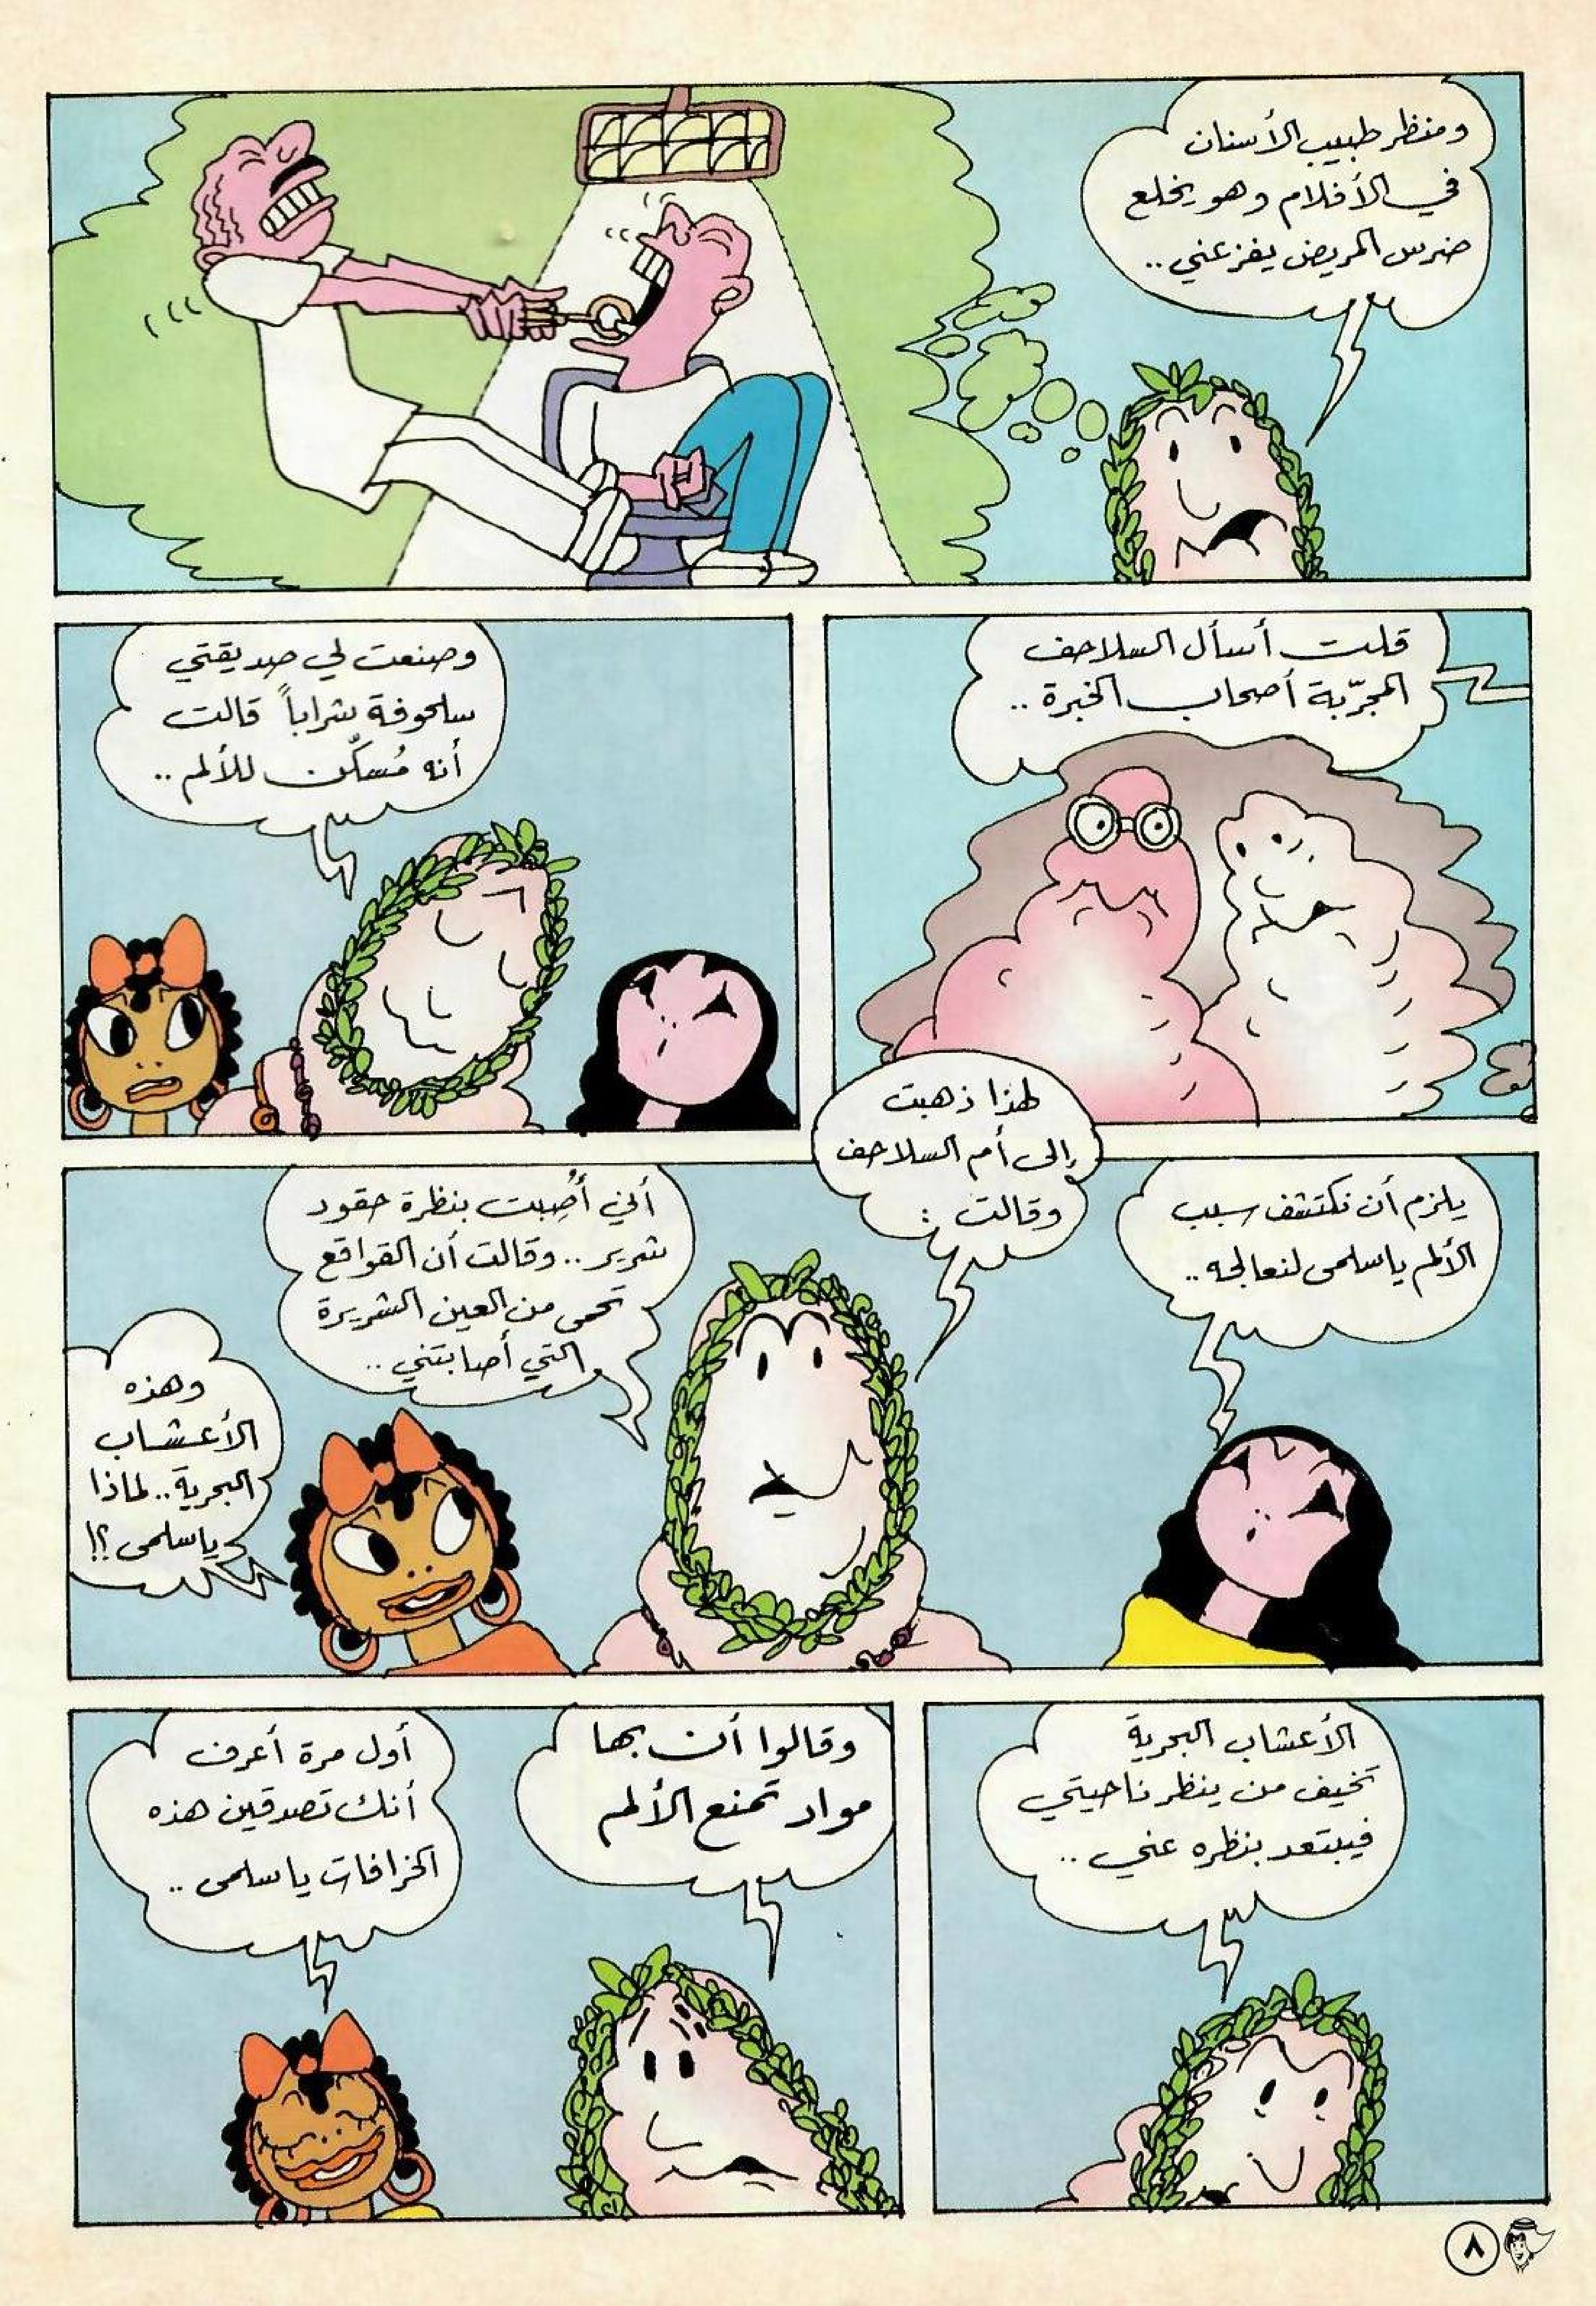 ومنظر طبيب الأسنان
في الأفلام وهو يخلع
ضرس المريض يفزعني ..
قلت أسأل السلاحف
المجرّبة أصحاب الخبرة ..
وصنعت لي صديقتي
سلحوفة شراباً قالت
أنه مُسكّن للألم ..
يلزم أن نكتشف سبب
الألم ياسلمى لنعالجه ..
لهذا ذهبت
إلى أم السلاحف
وقالت :
أني أُصِبت بنظرة حقود
شرير .. وقالت أن القواقع
تحمى من العين الشريرة
التي أصابتني ..
وهذه
الأعشاب
البحرية .. لماذا
ياسلمى ؟!
الأعشاب البحرية
تخيف من ينظر ناحيتي
فيبتعد بنظره عني ..
وقالوا أن بها
مواد تمنع الألم
أول مرة أعرف
أنك تصدقين هذه
الخرافات ياسلمى ..
٨